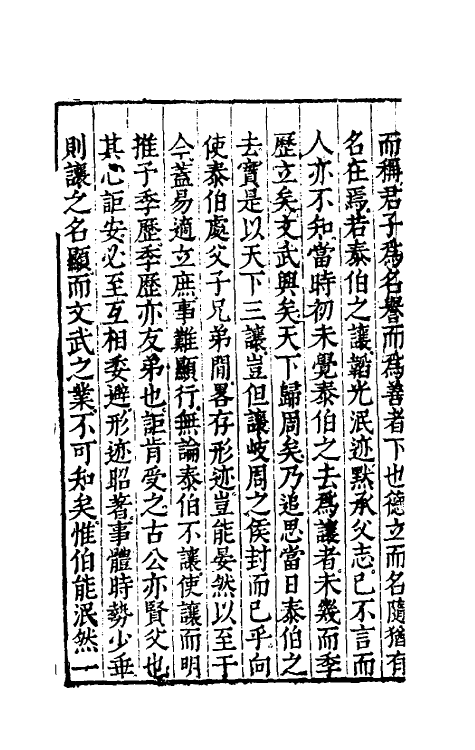 而稱君子爲名譽而爲善者下也德立而名隨猶有
名在焉若泰伯之讓韜光泯迹默承父志已不言而
人亦不知當時初未覺泰伯之去爲讓者未幾而季
歷立矣文武興矣天下歸周矣乃追思當日泰伯之
去實是以天下三讓豈但讓岐周之侯封而已乎向
使泰伯處父子兄弟間畧存形迹豈能晏然以至于
今蓋易適立庶事難顯行無論泰伯不讓使讓而明
推于季歷季歷亦友弟也詎肯受之古公亦賢父也
其心詎安必至互相委遯形迹昭著事體時勢少乖
則讓之名顯而文武之業不可知矣惟伯能泯然一